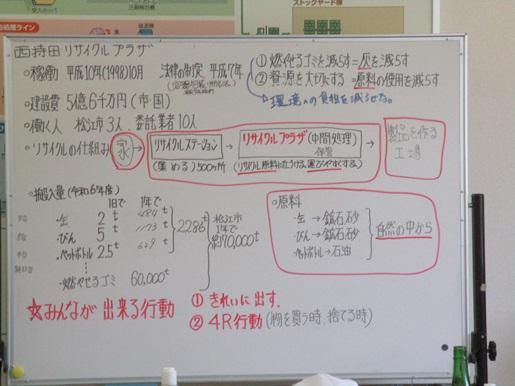 西持田リサイクルプラザ
○稼働 平成10年(1998)10月 法律の制定 平成7年
○建設費 5億6千万円(市・国)
○働く人 松江市3人、委託業者10人
○リサイクルの仕組み
家→リサイクルステーション→リサイクルプラザ(中間処理)→製品を作る工場
(集める)500ヶ所
保管
(リサイクル原料に仕分ける、運びやすくする)
①燃やせるゴミを減らす=灰を減らす
②資源を大切にする=原料の使用を減らす
環境への負担を減らせる。
○搬入量(令和6年度)
1日で 1年で
・缶 2t 484t
・びん 5t 1173t
・ペットボトル 2.5t 629t
2286t
松江市
1年で
約70,000t
・燃やせるゴミ 60,000t
○原料
・缶→鉱石砂
・びん→鉱石砂
・ペットボトル→石油
自然の中から
☆みんなが出来る行動
①きれいに出す。
②4R行動(物を買う時、捨てる時)
ストックヤード棟